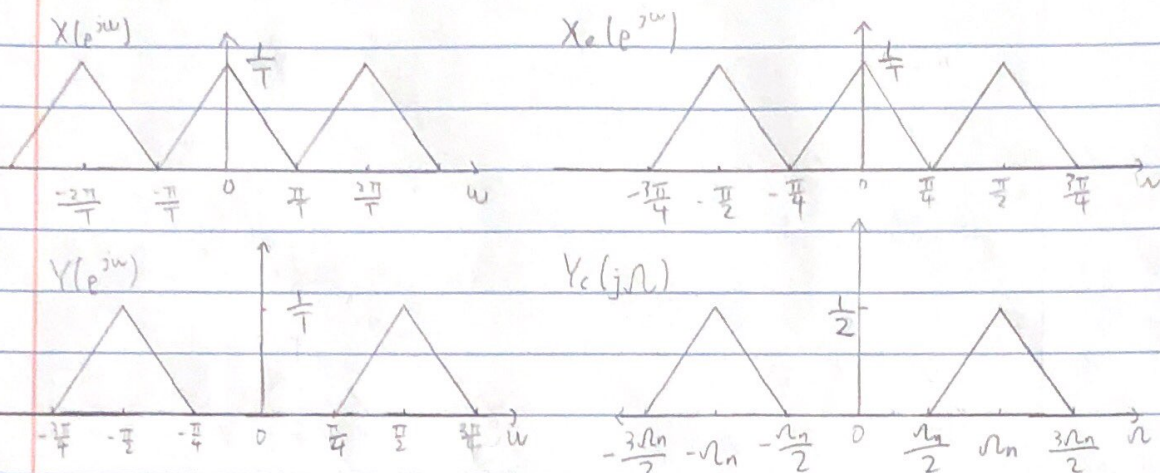 X(e^jω) 1/T
-2π/T -π/T 0 π/T 2π/T ω
X_e(e^jω) 1/T
-3π/4 -π/2 -π/4 0 π/4 π/2 3π/4 ω
Y(e^jω) 1/T
-3π/4 -π/2 -π/4 0 π/4 π/2 3π/4 ω
Y_c(jΩ) 1/2
-3Ω_n/2 -Ω_n -Ω_n/2 0 Ω_n/2 Ω_n 3Ω_n/2 Ω